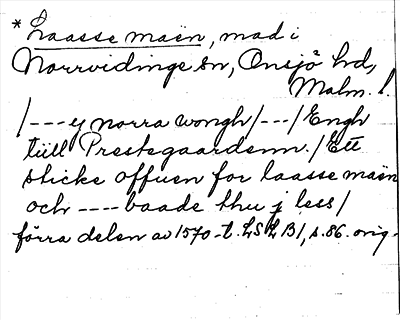 * Laasse maen, mad i
Norrvidinge sn, Onsjö hd,
Malm. l.
/---ej norra wongh/---/Engh
tiill Prestegaardenn./Ett
sticke offuen for laasse maen
och ---- baade thu j less/
förra delen av 1570-t. LSL B1, s. 86. orig-